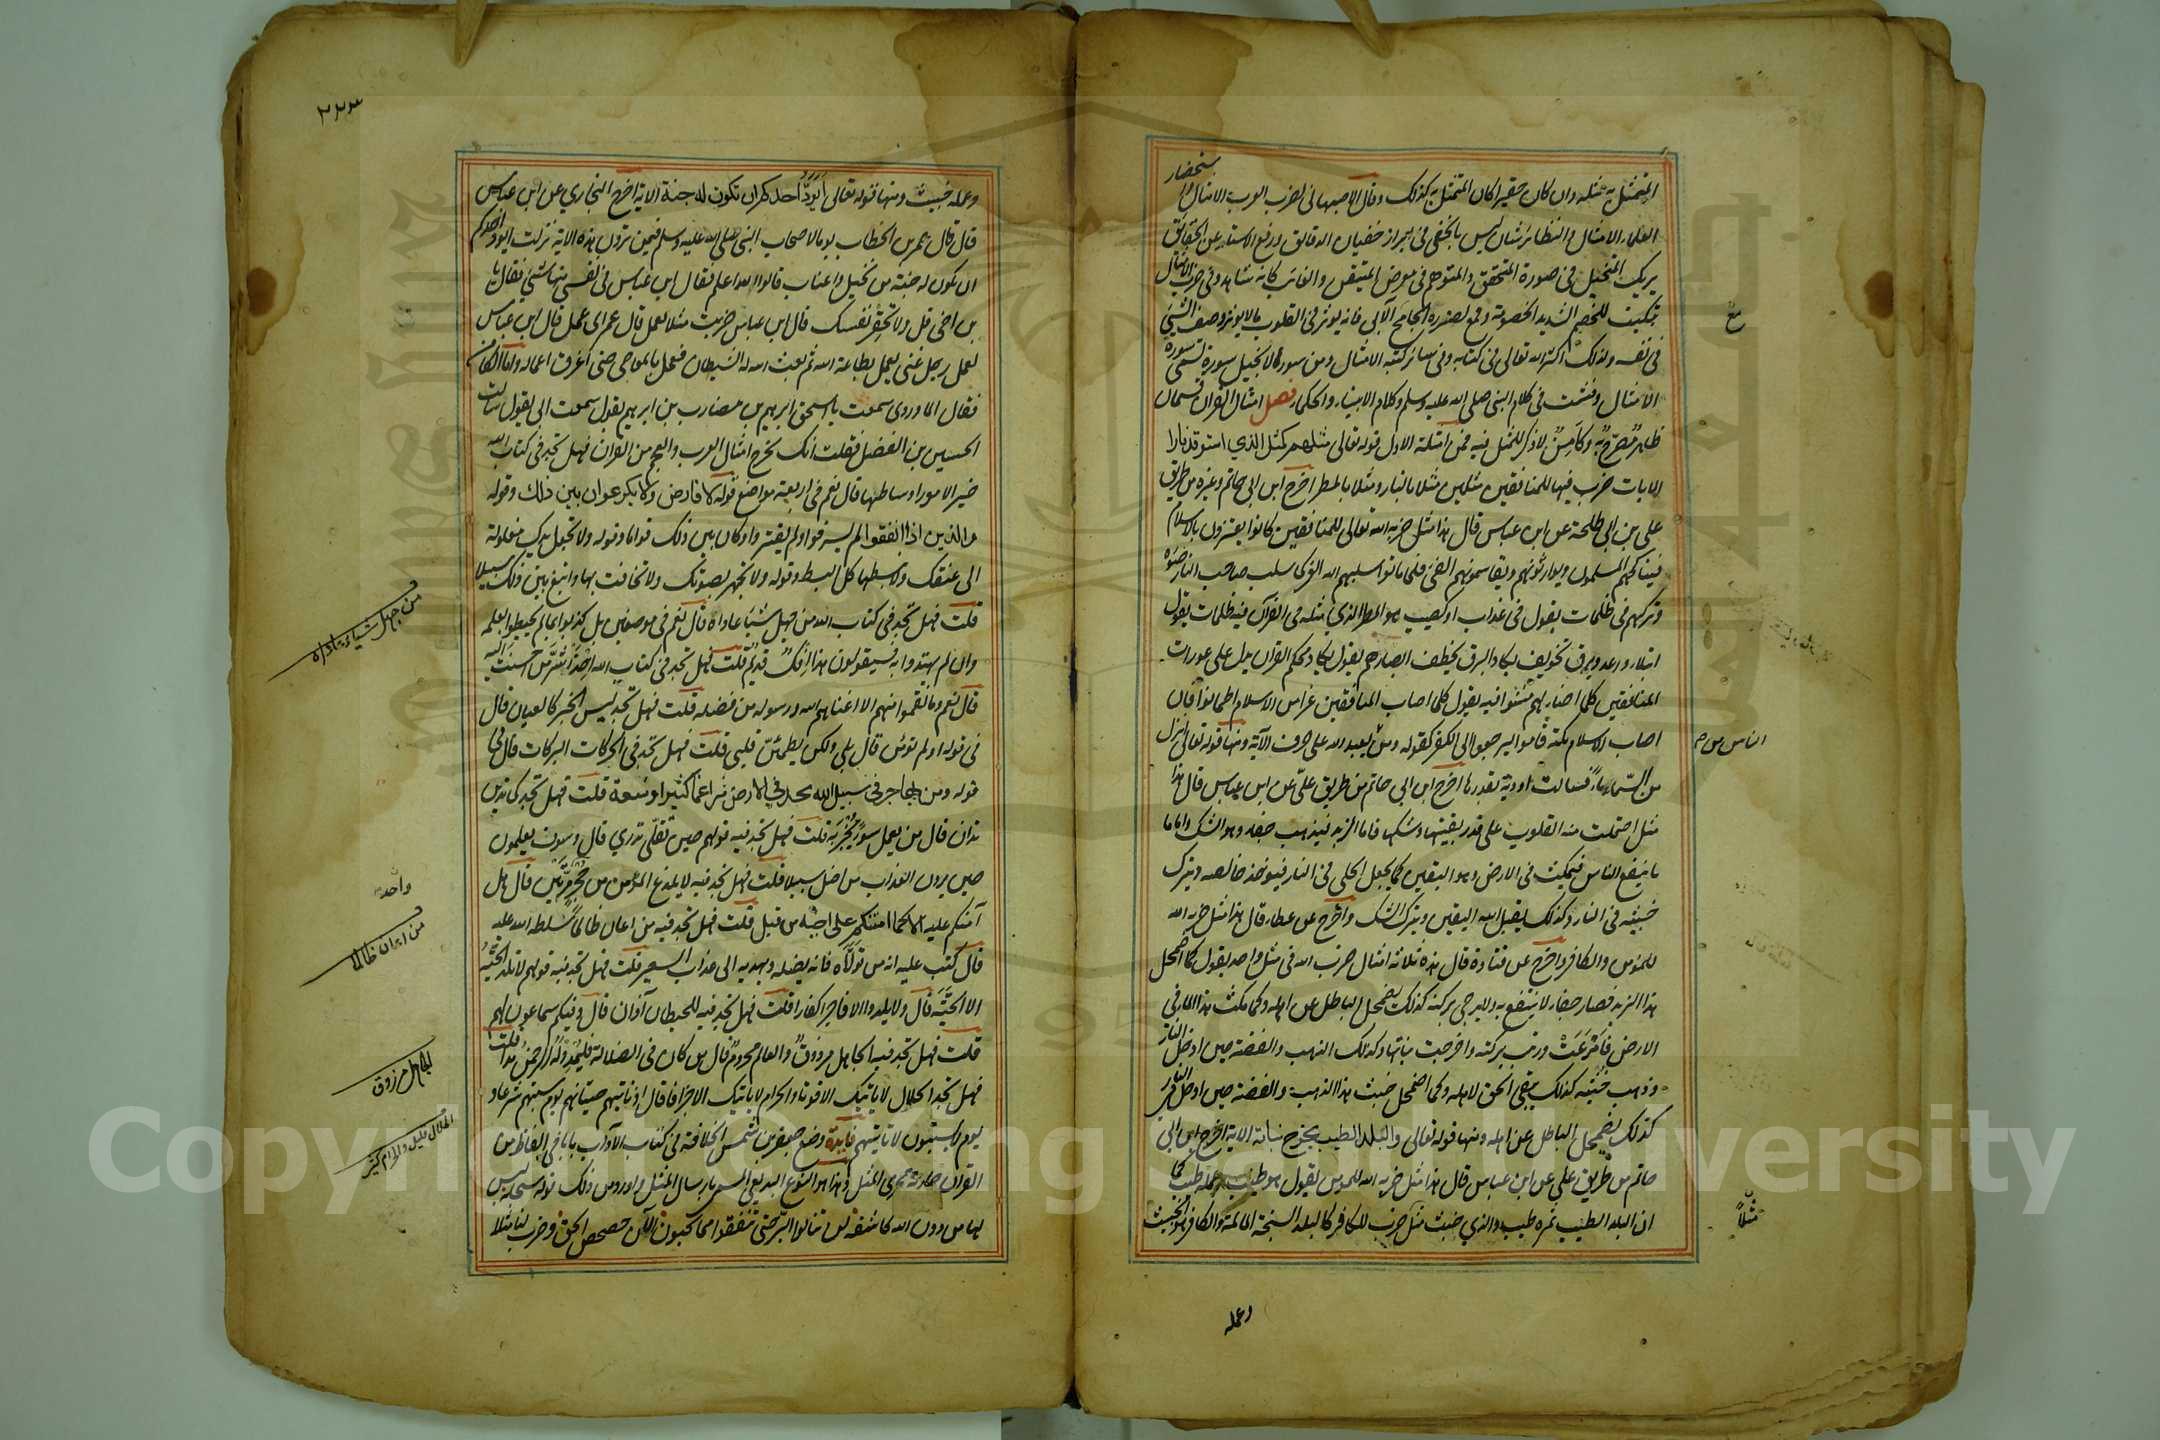 المتمثل به مثله وان كان حقيرا كان المتمثل به كذلك وقال الاصبهاني لضرب العرب الامثال و استحضار
العلماء الامثال والنظائر شان ليس بالخفي في ابراز خفيات الدقائق ورفع الاستار عن الحقائق
يريك المتخيل في صورة المتحقق والمتوهم في معرض المتيقن والغائب كانه شاهد وفي ضرب الامثال
تبكيت للخصم الشديد الخصومة وقمع لضرورة الجامح الآبي فانه يوثر في القلوب ما لا يوثر وصف الشيئ
في نفسه ولذلك اكثر الله تعالى في كتابه وفي سائر كتبه الامثال ومن سور الانجيل سورة تسمى سورة
الامثال وفشت في كلام النبي صلى الله عليه وسلم وكلام الانبياء والحكماء فصل امثال القرآن قسمان
ظاهر مُصرّح به وكامِن لا ذكر للمثل فيه فمن امثلة الاول قوله تعالى مثلهم كمثل الذي استوقد نارا
الايات ضرب فيها للمنافقين مثلين مثلا بالنار ومثلا بالمطر اخرج ابن ابي حاتم وغيره من طريق
علي بن ابي طلحة عن ابن عباس قال هذا مثل ضربه الله تعالى للمنافقين كانوا يعتزون بالاسلام
فيناكحهم المسلمون ويوارثونهم ويقاسمونهم الفيئ فلما ماتوا سلبهم الله العز كما سلب صاحب النار ضوءه
وتركهم في ظلمات يقول في عذاب او كصيب هو المطر الذي مثله في القرآن فيه ظلمات يقول
ابتلاء ورعد وبرق تخويف يكاد البرق يخطف ابصارهم يقول يكاد محكم القرآن يدل على عورات
المنافقين كلما اضاء لهم مشوا فيه يقول كلما اصاب المنافقين عزا من الاسلام اطمانوا فان
اصاب الاسلام نكبة قاموا ليرجعوا الى الكفر كقوله ومن يعبد الله على حرف الآية ومنها قوله تعالى انزل
من السّماء ماءً فسالت اودية بقدرها اخرج ابن ابي حاتم من طريق علي عن ابن عباس قال هذا
مثل احتملت منه القلوب على قدر يقينها وشكها فاما الزبد فيذهب جفاء وهو الشك واما ما
ما ينفع الناس فيمكث في الارض وهو اليقين كما يجعل الحلي في النار فيوخذ خالصه ويترك
خبيثه في النار وكذلك يقبل الله اليقين ويترك الشك واخرج عن عطاء قال هذا مثل ضربه الله
للمؤمن والكافر واخرج عن قتادة قال هذه ثلاثة امثال ضرب الله في مثل واحد يقول كما اضمحل
هذا الزبد فصار جفاء لا ينتفع به ولا يرجى بركته كذلك يضمحل الباطل عن اهله وكما مكث هذا الماء في
الارض فامْرَعَتْ وربت بركته واخرجت نباتها وكذلك الذهب والفضة حين ادخل النار
وذهب خبثه كذلك يبقى الحق لاهله وكما اضمحل خبث هذا الذهب والفضة حين ادخل في النار
كذلك يضمحل الباطل عن اهله ومنها قوله تعالى والبلد الطيب يخرج نباته الاية اخرج ابن ابي
حاتم من طريق علي عن ابن عباس قال هذا مثل ضربه الله للمؤمن يقول هو طيب وعمله طيب كما
ان البلد الطيب ثمره طيب والذي خبث مثل ضرب للكافر كالبلد السبخة المالحة والكافر هو الخبيث
مع
الناس من
مثلاً
وعمله
٢٢٣
وعمله خبيث ومنها قوله تعالى أيَوَدُّ أحدكم ان تكون له جنة الاية اخرج البخاري عن ابن عباس
قال قال عمر بن الخطاب يوما لاصحاب النبي صلى الله عليه وسلم فيمن ترون هذه الاية نزلت ايود احدكم
ان تكون له جنة من نخيل واعناب قالوا الله اعلم فقال ابن عباس في نفسي منها شئ فقال يا
بن اخي قل ولا تحقر نفسك قال ابن عباس ضربت مثلا لعمل قال عمر اي عمل قال ابن عباس
لعمل رجل غني يعمل بطاعة الله ثم بعث الله له الشيطان فعمل بالمعاصي حتى اغرق اعماله واما الكامن
فقال الماوردي سمعت ابا اسحق ابرهيم بن مضارب بن ابرهيم يقول سمعت ابي يقول سالت
الحسين بن الفضل فقلت انك تخرج امثال العرب والعجم من القرآن فهل تجد في كتاب الله
خير الامور اوساطها قال نعم في اربعة مواضع قوله لا فارض ولا بكر عوان بين ذلك وقوله
والذين اذا انفقوا لم يسرفوا ولم يقتروا وكان بين ذلك قواما وقوله ولا تجعل يدك مغلولة
الى عنقك ولا تبسطها كل البسط وقوله ولا تجهر بصوتك ولا تخافت بها وابتغ بين ذلك سبيلا
قلت فهل تجد في كتاب الله من جهل شيئا عاداه قال نعم في موضعين بل كذبوا بما لم يحيطوا بعلمه
واذ لم يهتدوا به فسيقولون هذا إفكٌ قديم قلت فهل تجد في كتاب الله احذر شرّ من احسنت اليه
قال نعم وما نقموا منهم الا ان اغناهم الله ورسوله من فضله قلت فهل تجد ليس الخبر كالعيان قال
في قوله او لم تؤمن قال بلى ولكن ليطمئن قلبي قلت فهل تجد في الحركات البركات قال في
قوله ومن يهاجر في سبيل الله يجد في الارض مراغما كثيرا وسعة قلت فهل تجد كما تدين
تدان قال من يعمل سوءً يُجْزَ به قلت فهل تجد فيه قولهم حين تقلى تدري قال وسوف يعلمون
حين يرون العذاب من اضل سبيلا قلت فهل تجد فيه لا يلدغ المؤمن من جُحر مرّتين قال هل
آمنكم عليه الا كما امنتكم على اخيه من قبل قلت فهل تجد فيه من اعان ظالماً سُلّطه الله عليه
قال كُتب عليه انه من تولّاه فانه يضله ويهديه الى عذاب السعير قلت فهل تجد فيه قولهم لا تلد الحيَّة
الا الحيَّة قال ولا يلدوا الا فاجرا كفارا قلت فهل تجد فيه للحيطان آذان قال وفيكم سماعون لهم
قلت فهل تجد فيه الجاهل مرزوقٌ والعالم محرومٌ قال من كان في الضلالة فليمدد له الرحمن مدا قلت
فهل تجد الحلال لا ياتيك الا قوتا والحرام لا ياتيك الا جزافا قال اذ تاتيهم حيتانهم يوم سبتهم شرعا و
يوم لا يسبتون لا تاتيهم فايدة وضع جعفر بن شمس الخلافة في كتاب الآداب بابا في الفاظ من
القرآن جارية مجرى المثل وهذا هو النوع البديعي المسمى بارسال المثل واورد من ذلك قوله سبحانه ليس
لها من دون الله كاشفة لن تنالوا البرّ حتى تنفقوا مما تحبون الآن حصحص الحق وضرب لنا مثلا
من جهل شيئا عاداه
واحد
من اعان ظالما
الجاهل مرزوق
الحلال قليل والحرام كثير
Copyright © King Saud University